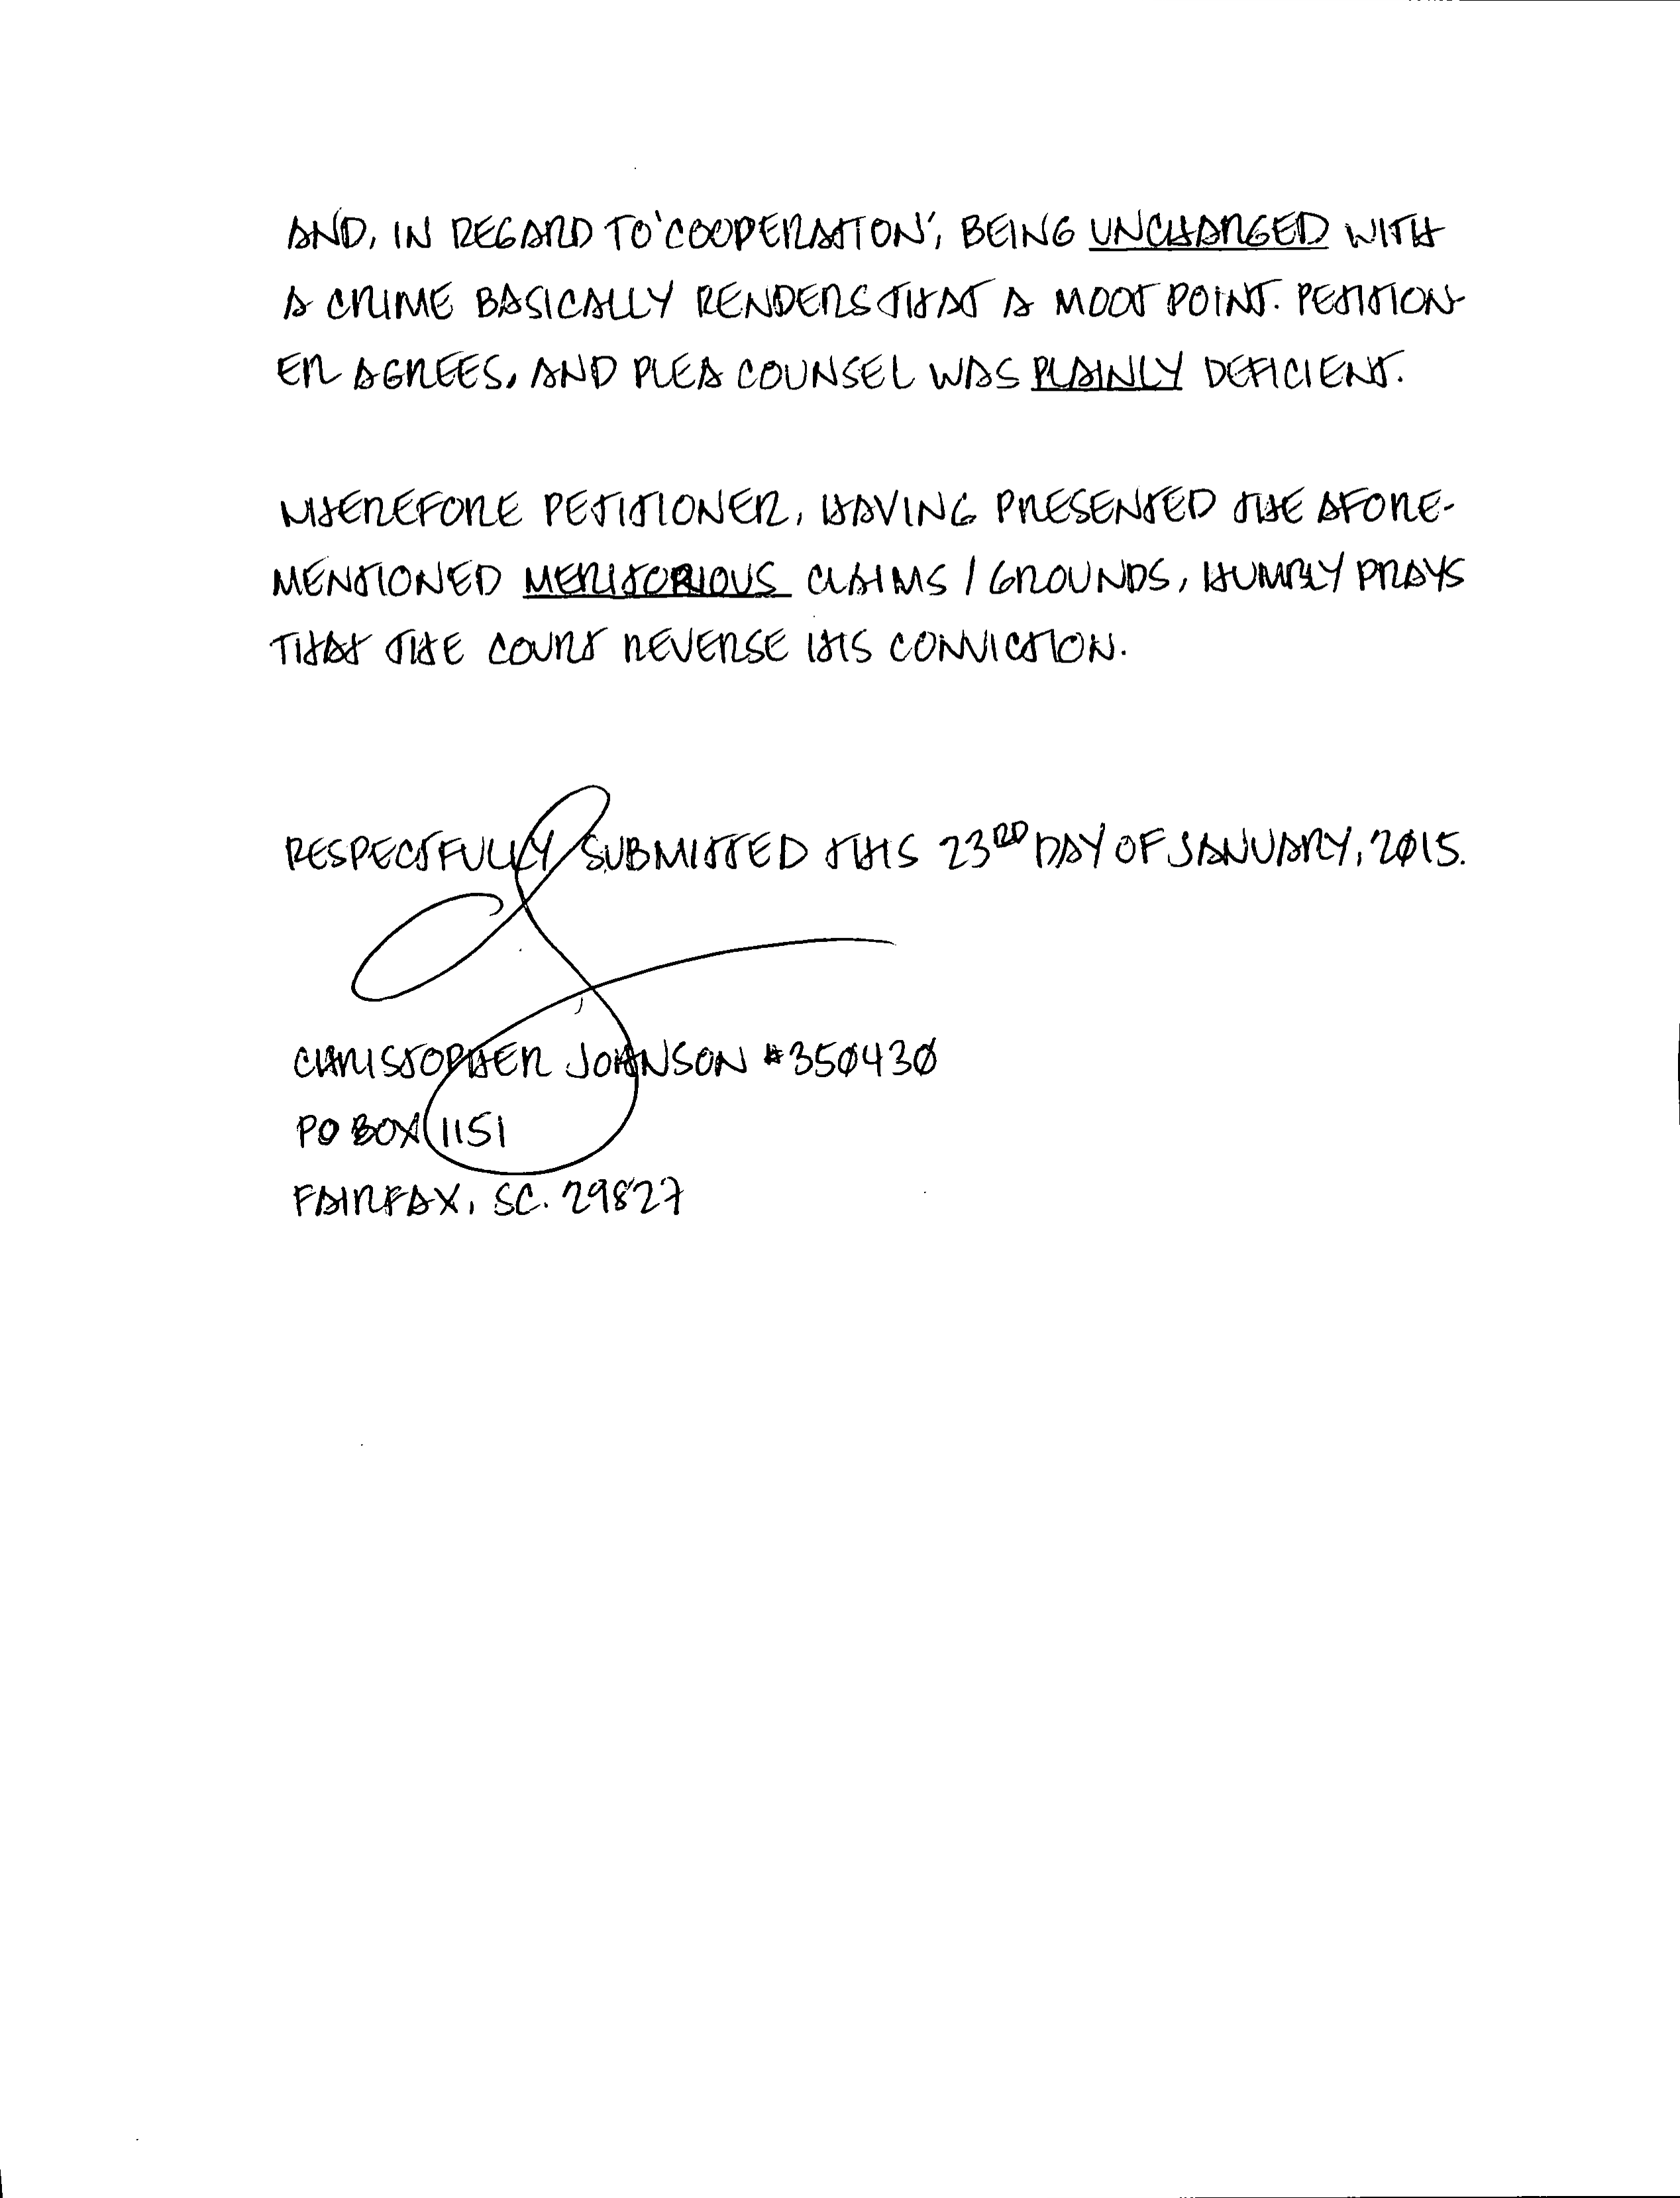 AND, IN REGARD TO 'COOPERATION', BEING UNCHARGED WITH
A CRIME BASICALLY RENDERS THAT A MOOT POINT. PETITION-
ER AGREES, AND PLEA COUNSEL WAS PLAINLY DEFICIENT.
WHEREFORE PETITIONER, HAVING PRESENTED THE AFORE-
MENTIONED MERITORIOUS CLAIMS / GROUNDS, HUMBLY PRAYS
THAT THE COURT REVERSE HIS CONVICTION.
RESPECTFULLY SUBMITTED THIS 23RD DAY OF JANUARY, 2015.
CHRISTOPHER JOHNSON #350430
PO BOX 1151
FAIRFAX, SC. 29827